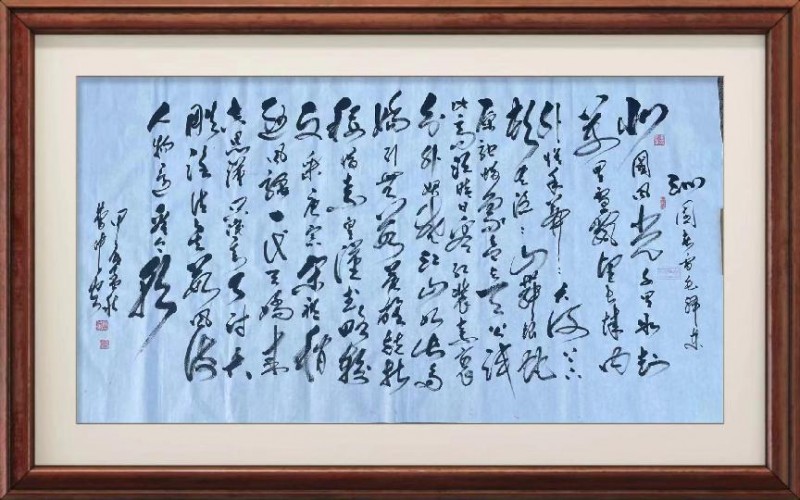 沁园春雪毛泽东
北国风光千里冰封
万里雪飘望长城内
外惟余莽莽大河上下
顿失滔滔山舞银蛇
原驰蜡象欲与天公试
比高须晴日看红装素裹
分外妖娆江山如此多
娇引无数英雄竞折
腰惜秦皇汉武略输
文采唐宗宋祖稍
逊风骚一代天骄成
吉思汗只识弯弓射大
雕俱往矣数风流
人物还看今朝
甲辰